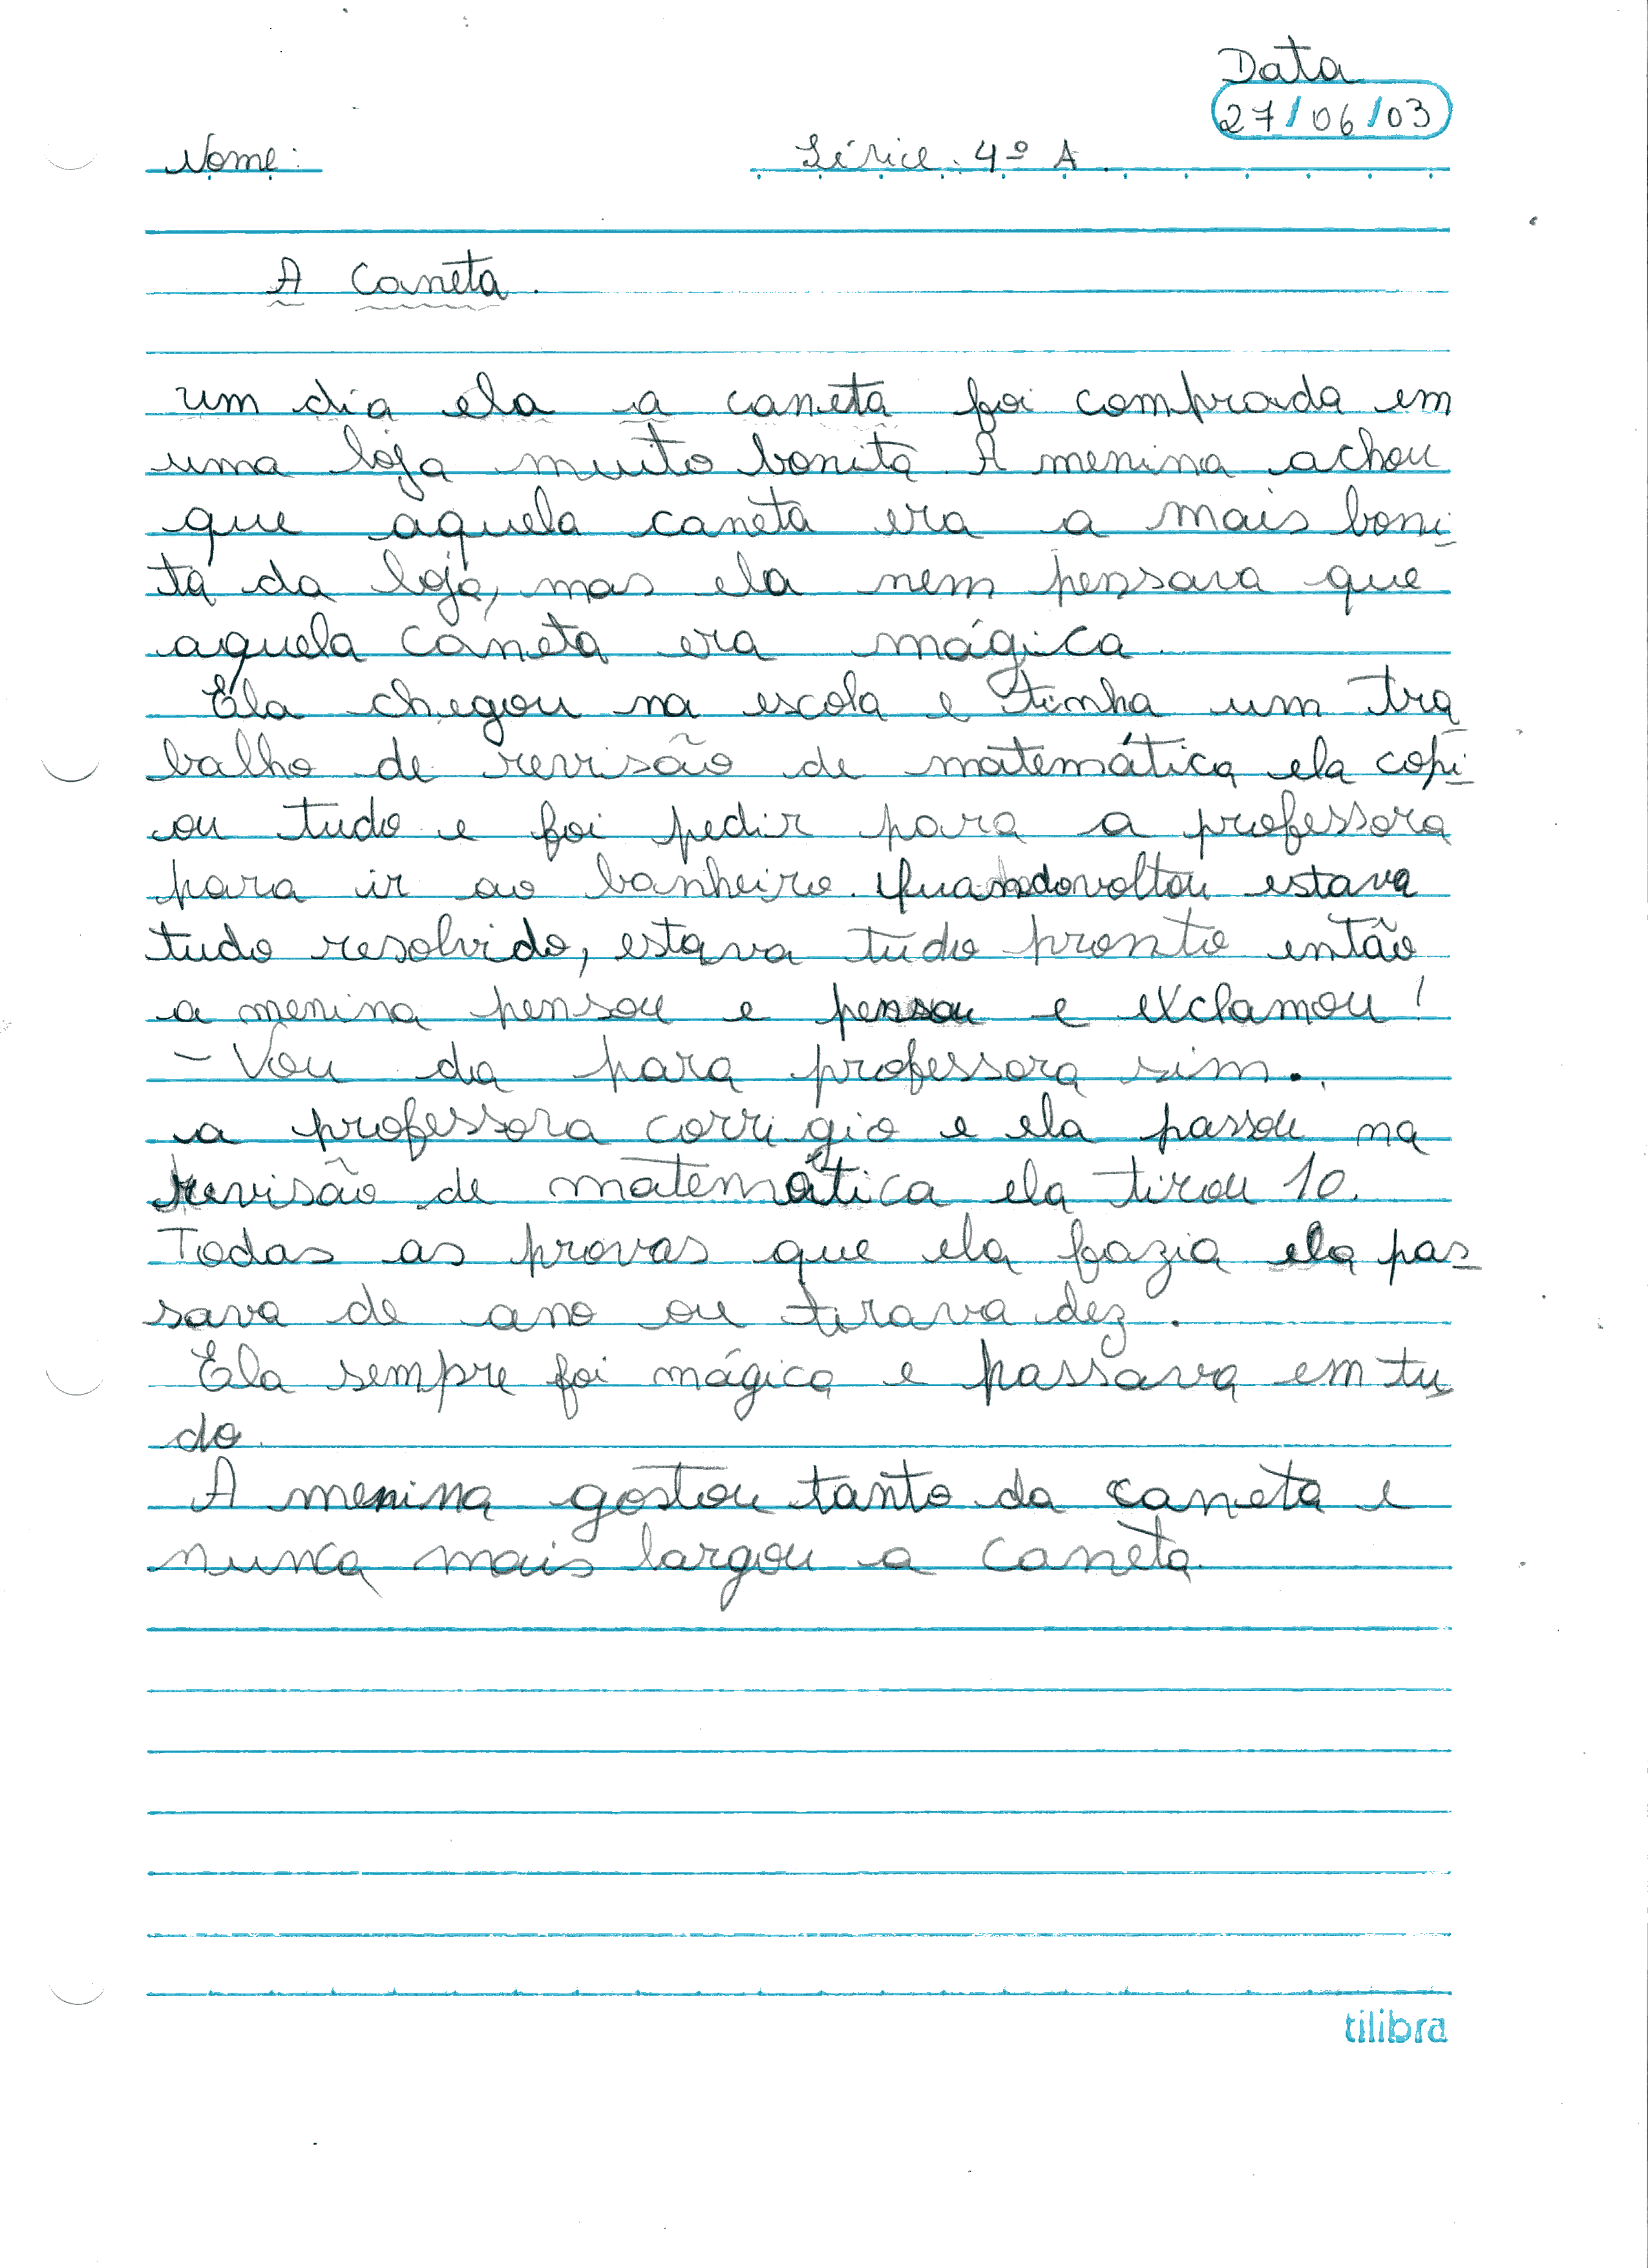 Data
27/06/03
Nome: Série: 4º A.
A Caneta.
um dia ela a caneta foi comprada em
uma loja muito bonita. A menina achou
que aquela caneta era a mais boni-
ta da loja, mas ela nem pensava que
aquela caneta era mágica.
Ela chegou na escola e tinha um tra
balho de revisão de matemática ela copi-
ou tudo e foi pedir para a professora
para ir ao banheiro. Quando voltou estava
tudo resolvido, estava tudo pronto então
a menina pensou e pensou e exclamou!
- Vou da para professora sim.
a professora corrigio e ela passou na
revisão de matemática ela tirou 10.
Todas as provas que ela fazia ela pas-
sava de ano ou tirava dez.
Ela sempre foi mágica e passava em tu
do.
A menina gostou tanto da caneta e
nunca mais largou a caneta.
tilibra